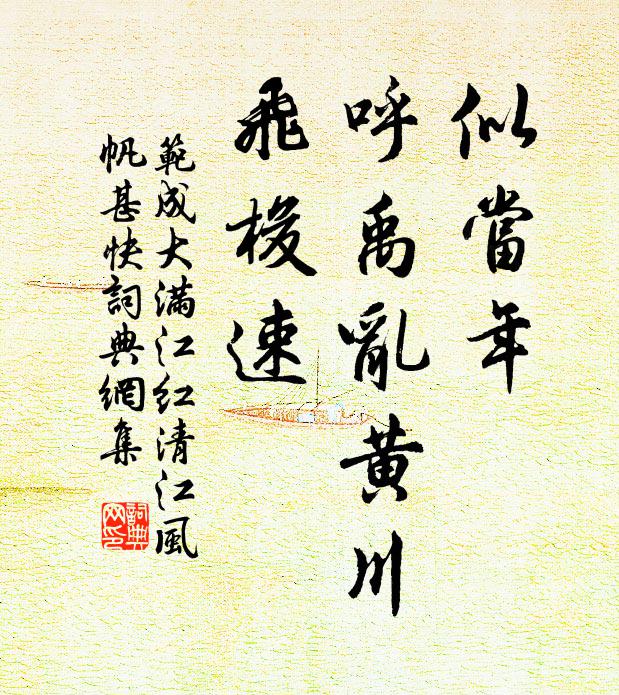 似當年
呼禹亂黃川
飛梭速
範成大滿江红清江風
帆甚快詞典網集
詞典
网印